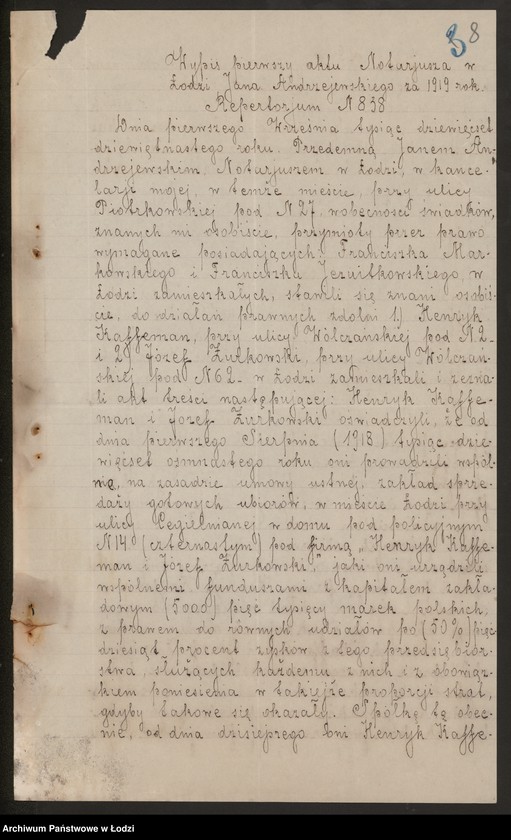 38
Wypis pierwszy aktu Notarjusza w
Łodzi Jana Andrzejewskiego za 1919 rok.
Repertorjum N 838
Dnia pierwszego Września tysiąc dziewięćset
dziewiętnastego roku. Przedemną Janem An-
drzejewskim, Notarjuszem w Łodzi, w kance-
larji mojej, w temże mieście, przy ulicy
Piotrkowskiej pod N 27, wobecności świadków,
znanych mi osobiście, przymioty przez prawo
wymagane posiadających: Franciszka Mar-
kowskiego i Franciszka Jezuitkowskiego, w
Łodzi zamieszkałych, stawili się znani osobiś-
cie, do działań prawnych zdolni 1) Henryk
Kaffeman, przy ulicy Wólczańskiej pod N 2
i 2) Józef Żurkowski, przy ulicy Wólczań-
skiej pod N 62 w Łodzi zamieszkali i zezna-
li akt treści następującej: Henryk Kaffe-
man i Józef Żurkowski oświadczyli, że od
dnia pierwszego Sierpnia (1918) tysiąc dzie-
więćset osmnastego roku oni prowadzili wspól-
nie, na zasadzie umowy ustnej, zakład sprze-
daży gotowych ubiorów, w mieście Łodzi przy
ulicy Cegielnianej w domu pod policyjnym
N 14 (czternastym) pod firmą „Henryk Kaffe-
man i Józef Żurkowski," jaki oni urządzili
wspólnemi funduszami z kapitałem zakła-
dowym (5000) pięć tysięcy marek polskich,
z prawem do równych udziałów po (50%) pięć-
dziesiąt procent zysków z tego przedsiębior-
stwa, służących każdemu z nich i z obowiąz-
kiem poniesienia w takiejże proporcji strat,
gdyby takowe się okazały. Spółkę tę obec-
nie, od dnia dzisiejszego oni Henryk Kaffe-
Archiwum Państwowe w Łodzi